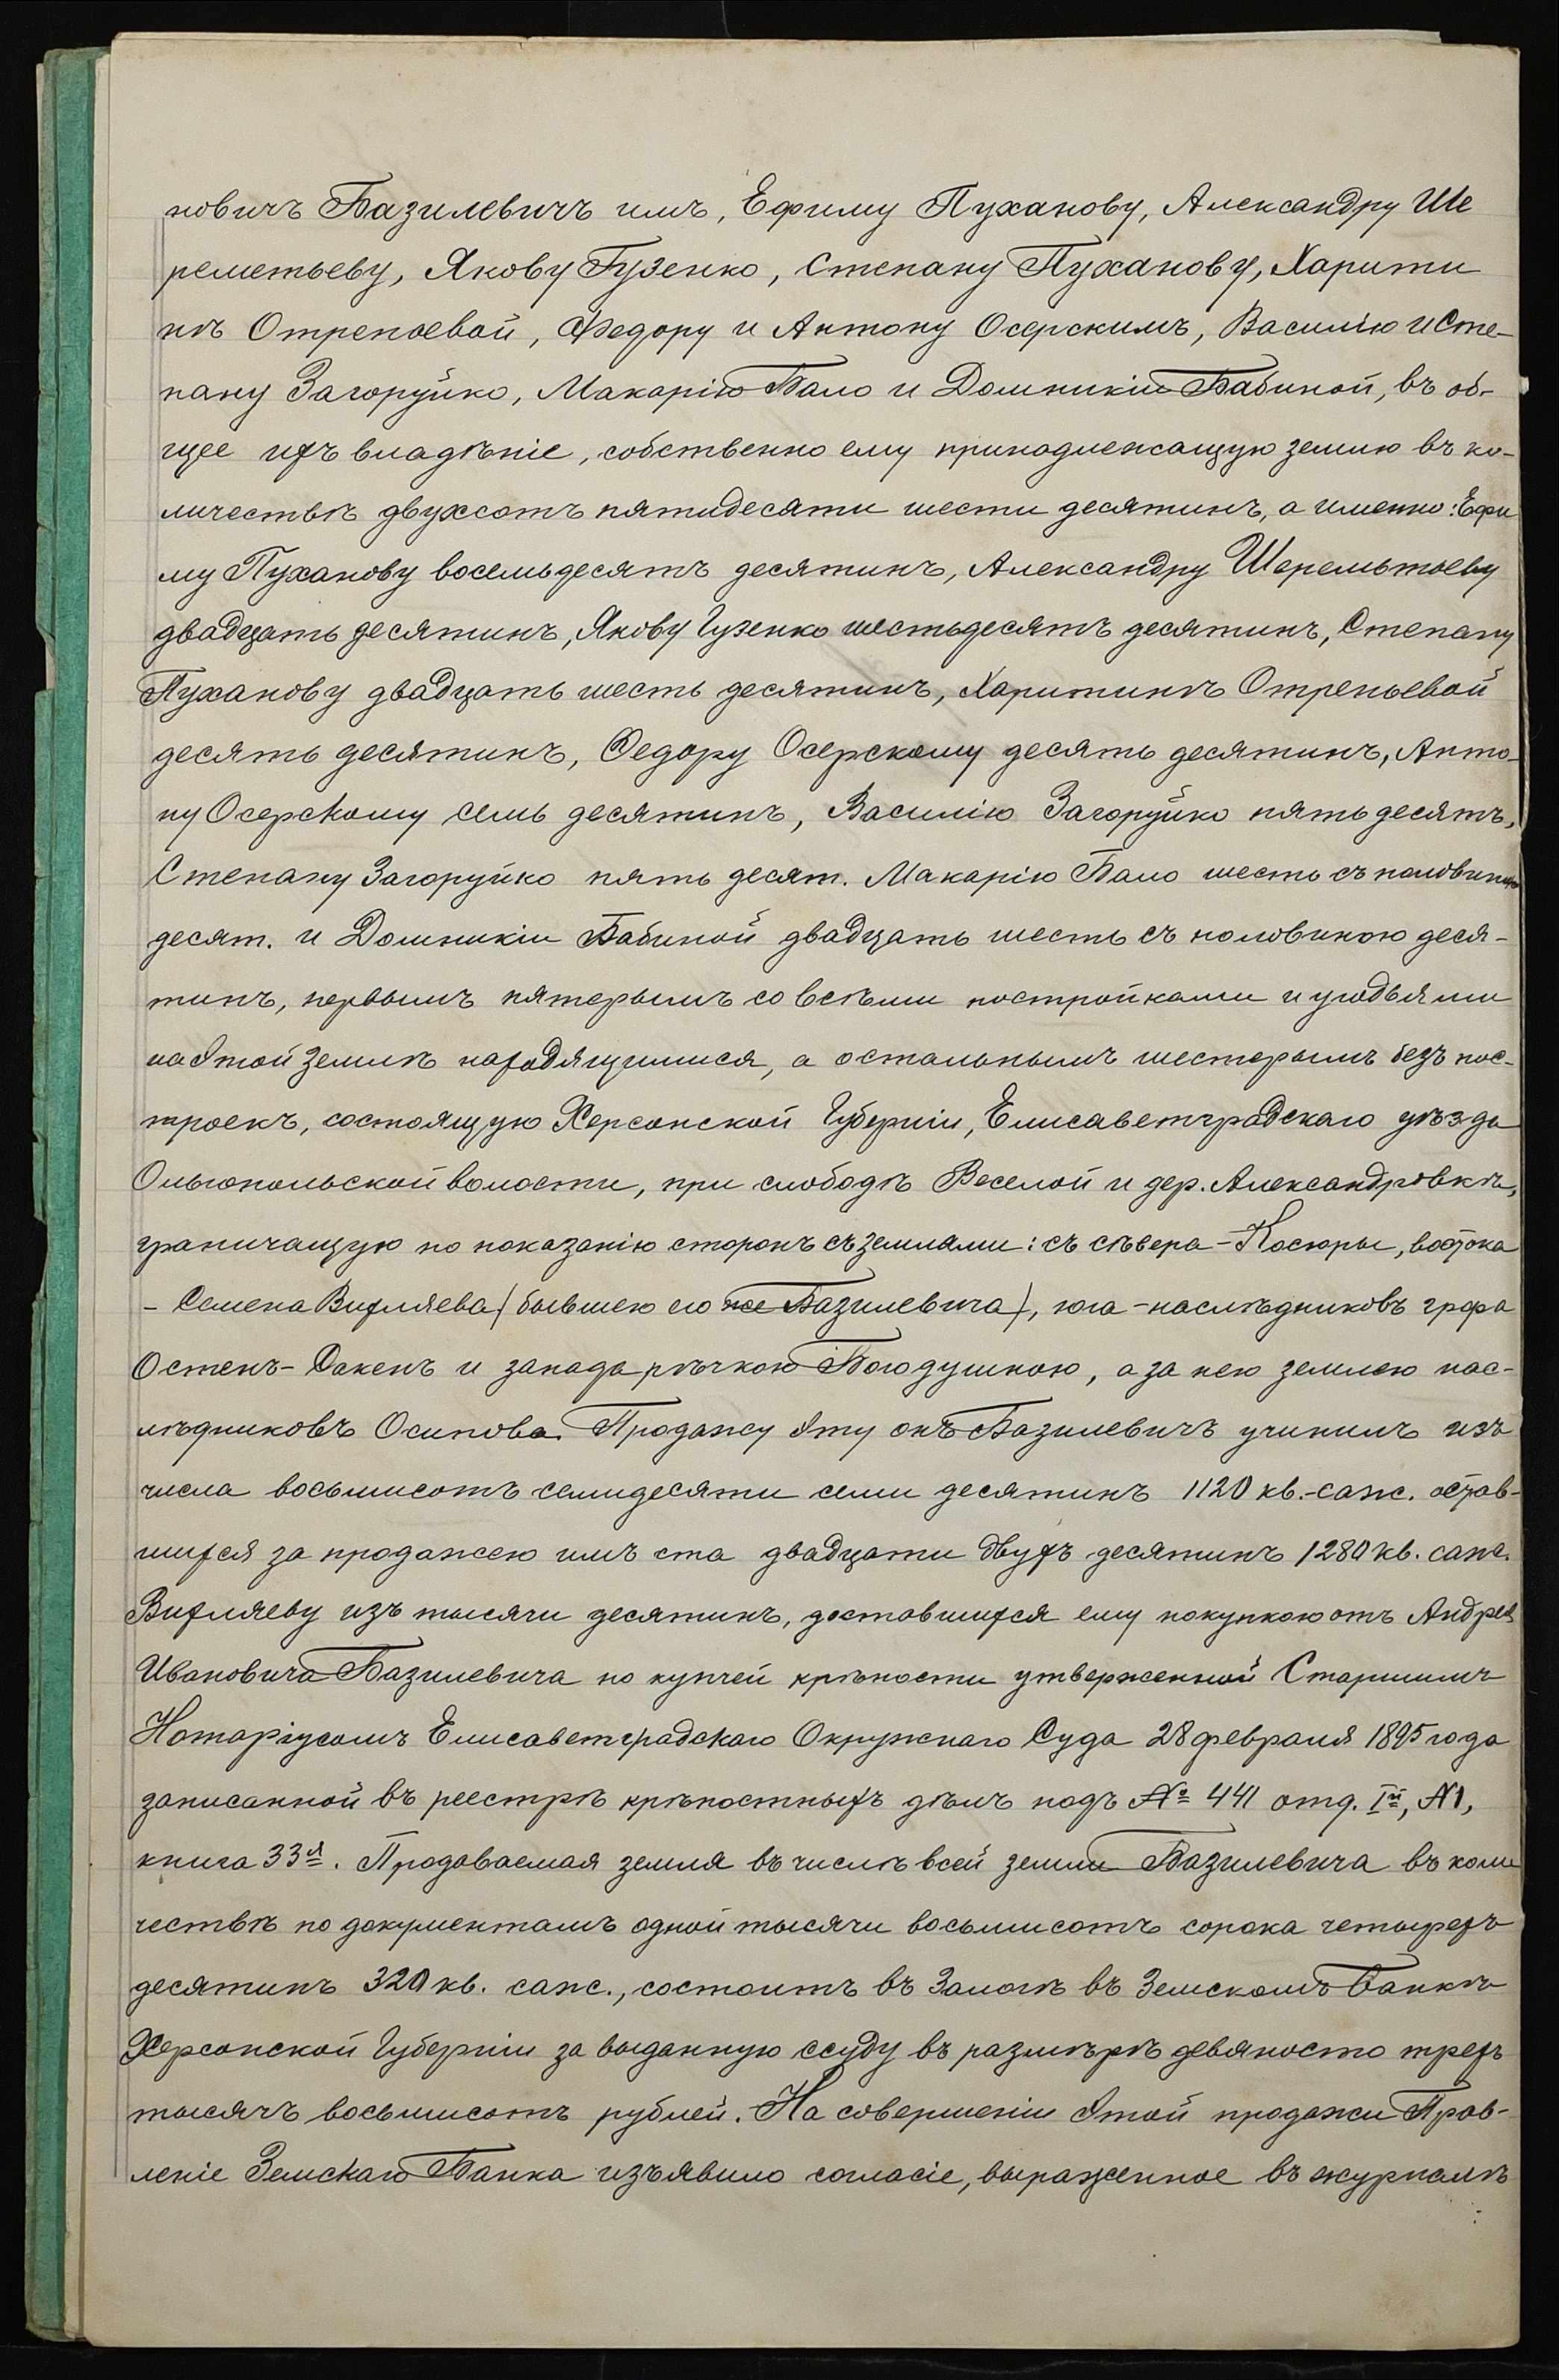 новичъ Базилевичъ имъ, Ефиму Пуханову, Александру Ше
реметьеву, Якову Гузенко, Степану Пуханову, Харити
нѣ Отрепьевой, Федору и Антону Осерскимъ, Василію и Сте-
пану Загоруйко, Макарію Бало и Домникіи Бабиной, въ об-
щее ихъ владѣніе, собственно ему принадлежащую землю въ ко-
личествѣ двухсотъ пятидесяти шести десятинъ, а именно: Ефи
му Пуханову восемьдесятъ десятинъ, Александру Шереметьеву
двадцать десятинъ, Якову Гузенко шестьдесятъ десятинъ, Степану
Пуханову двадцать шесть десятинъ, Харитинѣ Отрепьевой
десять десятинъ, Федору Осерскому десять десятинъ, Анто-
ну Осерскому семь десятинъ, Василію Загоруйко пять десятъ,
Степану Загоруйко пять десят. Макарію Бало шесть съ половиною
десят. и Домникіи Бабиной двадцать шесть съ половиною деся-
тинъ, первымъ пятерымъ со всѣми постройками и угодьями
на этой землѣ находящимися, а остальнымъ шестерымъ безъ пос-
троекъ, состоящую Херсонской Губерніи, Елисаветградскаго уѣзда
Ольгопольской волости, при слободѣ Веселой и дер. Александровкѣ,
граничащую по показанію сторонъ съ землями: съ сѣвера - Косюры, востока
- Семена Вихляева (бывшею его же Базилевича), юга - наслѣдниковъ графа
Остенъ-Сакенъ и запада рѣчкою Богодушною, а за нею землею нас-
лѣдниковъ Осипова. Продажу эту онъ Базилевичъ учинилъ изъ
числа восьмисотъ семидесяти семи десятинъ 1120 кв.-саж. остав-
шихся за продажею имъ ста двадцати двухъ десятинъ 1280 кв. саж.
Вихляеву изъ тысячи десятинъ, доставшихся ему покупкою отъ Андрея
Ивановича Базилевича по купчей крѣпости утверженной Старшимъ
Нотаріусомъ Елисаветградскаго Окружнаго Суда 28 февраля 1895 года
записанной въ реестрѣ крѣпостныхъ дѣлъ подъ № 441 отд. Iй, №1,
книга 33я. Продаваемая земля въ числѣ всей земли Базилевича въ коли
чествѣ по документамъ одной тысячи восьмисотъ сорока четырехъ
десятинъ 320 кв. саж., состоитъ въ Залогѣ въ Земскомъ Банкѣ
Херсонской Губерніи за выданную ссуду въ размѣрѣ девяносто трехъ
тысячъ восьмисотъ рублей. На совершеніи этой продажи Прав-
леніе Земскаго Банка изъявило согласіе, выраженное въ журналѣ